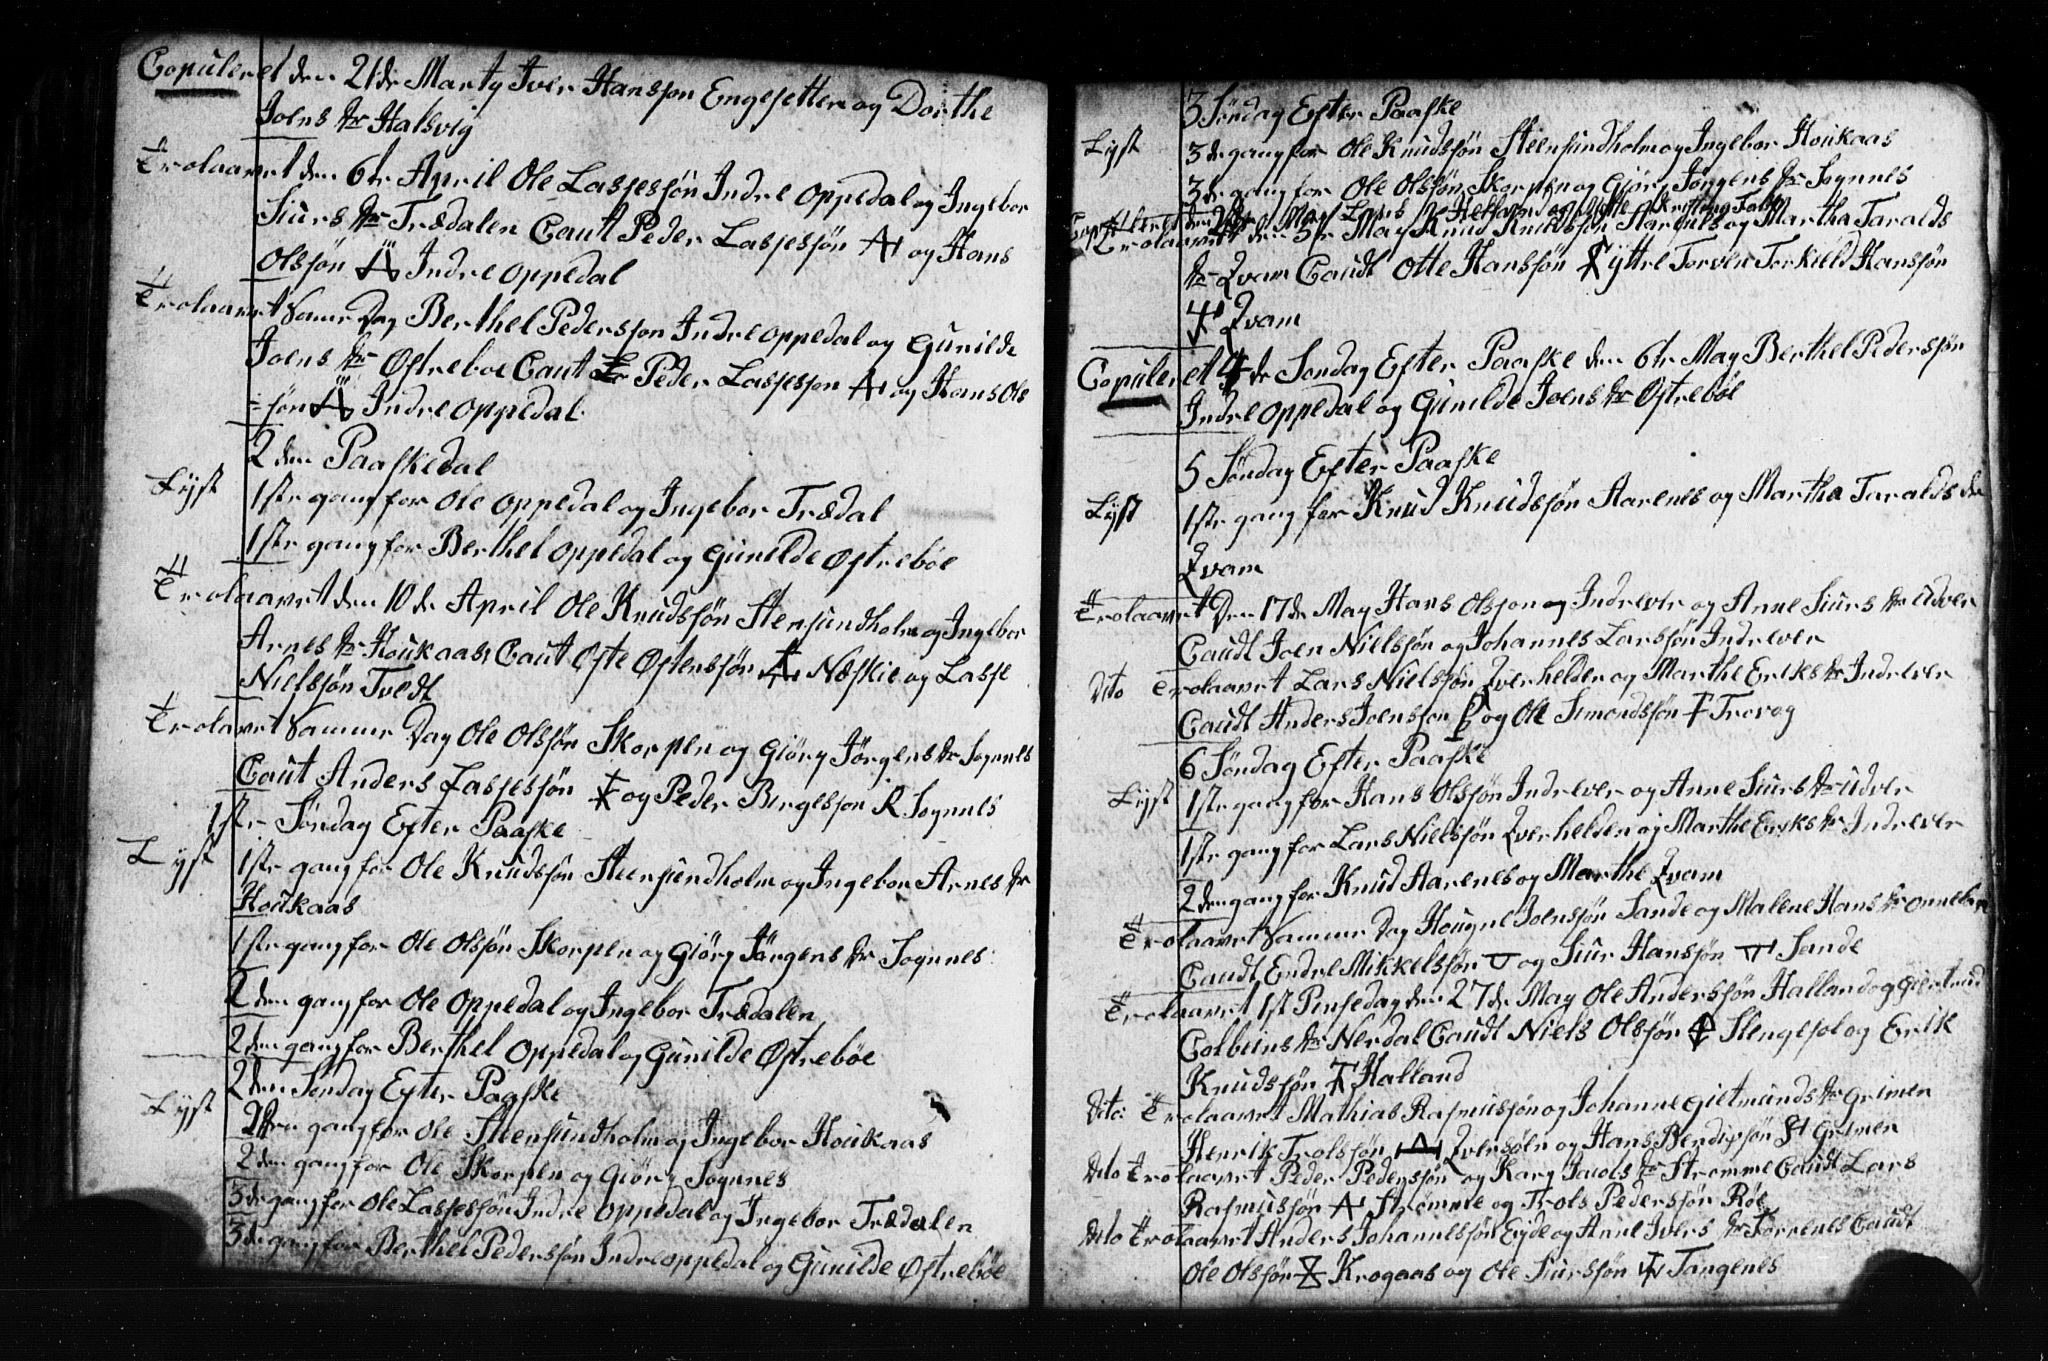 Copuleret den 21de Marty Iver Hansson Engesetter og Dorthe
Joens dr Halsvig
Trolaavet den 6te April Ole Lassesøn Indre Oppedal og Ingebor
Siurs dr Trædalen Caut Peder Lassesøn og Hans
Olssøn Indre Oppedal
Trolaavet Samme Dag Berthel Pedersson Indre Oppedal og Gunilde
Joens dr Østreboe Caut Peder Lassesson og Hans Ols
=søn Indre Oppedal
2den Paaskedal
Lyst 1ste gang for Ole Oppedal og Ingebor Trædal
1ste gang for Berthel Oppedal og Gunilde Østrebøe
Trolaavet den 10de April Ole Knudssøn Stensundholm og Ingebor
Arnes dr Houkaas, Caut Øste Østenssøn Næskie og Lasse
Nielssøn Tvedt
Trolavet Samme Dag Ole Olssøn Skorpen og Giørg Jørgens dr Sognnes
Caut Anders Lassesøn og Peder Birgesson R Sognnes
1ste Søndag Efter Paaske
Lyst 1ste gang for Ole Knudssøn Steensundholm og Ingebor Arnes dr
Houkaas
1ste gang for Ole Olssøn Skorpen og Giørg Jørgens dr Sognnes
2den gang for Ole Oppedal og Ingebor Trædalen
2den gang for Berthel Oppedal og Gunilde Østrebøe
2den Søndag Efter Paaske
Lyst 2den gang for Ole Steensundholm og Ingebor Houkaas
2den gang for Ole Skorpen og Giørg Sognnes
3de gang for Ole Lassesøn Indre Oppedal og Ingebor Trædalen
3de gang for Berthel Pederssøn Indre Oppedal og Gunilde Østrebøe
3 Søndag Efter Paaske
Lyst 3de gang for Ole Knudssøn Steensundholm og Ingebor Houkaas
3de gang for Ole Olssøn Skorpen og Giørg Jørgens dr Sognnes
Copuleret den May Helland og
Trolaavet den 5te May Knud Knudssøn Aarenes og Martha Taralds
dr Qvam Caudt Otte Hanssøn Yttre Torven Torkield Hanssøn
Qvam
Copuleret 4de Søndag Efter Paaske den 6te May Berthel Pederssøn
Indre Oppedal og Gunilde Joens dr Østrebøe
5 Søndag Efter Paaske
Lyst 1ste gang for Knud Knudssøn Aarenes og Martha Taralds dr
Qvam
Trolaavet Den 17de May Hans Olsson og Indrever og Anne Siurs dr Udver
Caudt Joen Nielssøn og Johannes Larssøn Indrever
Dito Trolaavet Lars Nielssøn Qverhelden og Marthe Eriks dr Indrever
Caudt Anders Joensson og Ole Simondssøn Trovog
6 Søndag Efter Paaske
Lyst 1ste gang for Hans Olssøn Indrever og Anne Siurs dr Udver
1ste gang for Lars Nielssøn Qverhelden og Marthe Eriks dr Indrever
2den gang for Knud Aarenes og Marthe Qvam
Trolaavet Samme Dag Hougne Joenssøn Sande og Malene Hans dr
Caudt Endre Mikkelssøn og Siur Hanssøn Sande
Trolaavet 1st Pinsedag den 27de May Ole Anderssøn Halland og Giertrud
Colbeins dr Nerdal Caudt Niels Olssøn Stengesol og Erik
Knudssøn Halland
Dito: Trolaavet Mathias Rasmussøn og Johanne Gietmunds dr Grimen
Henrik Trolssøn Qversøen og Hans Bendixsøn Grimen
Dito Trolaavet Peder Pederssøn og Kary Jacobs dr Strømme Caudt Lars
Rasmussøn Strømme og Trols Pederssøn Røe
Dito Trolaavet Anders Johannessøn Eyde og Anne Ivers dr Torvenes Caudt
Ole Olssøn Krogaas og Ole Siurssøn Tangenes